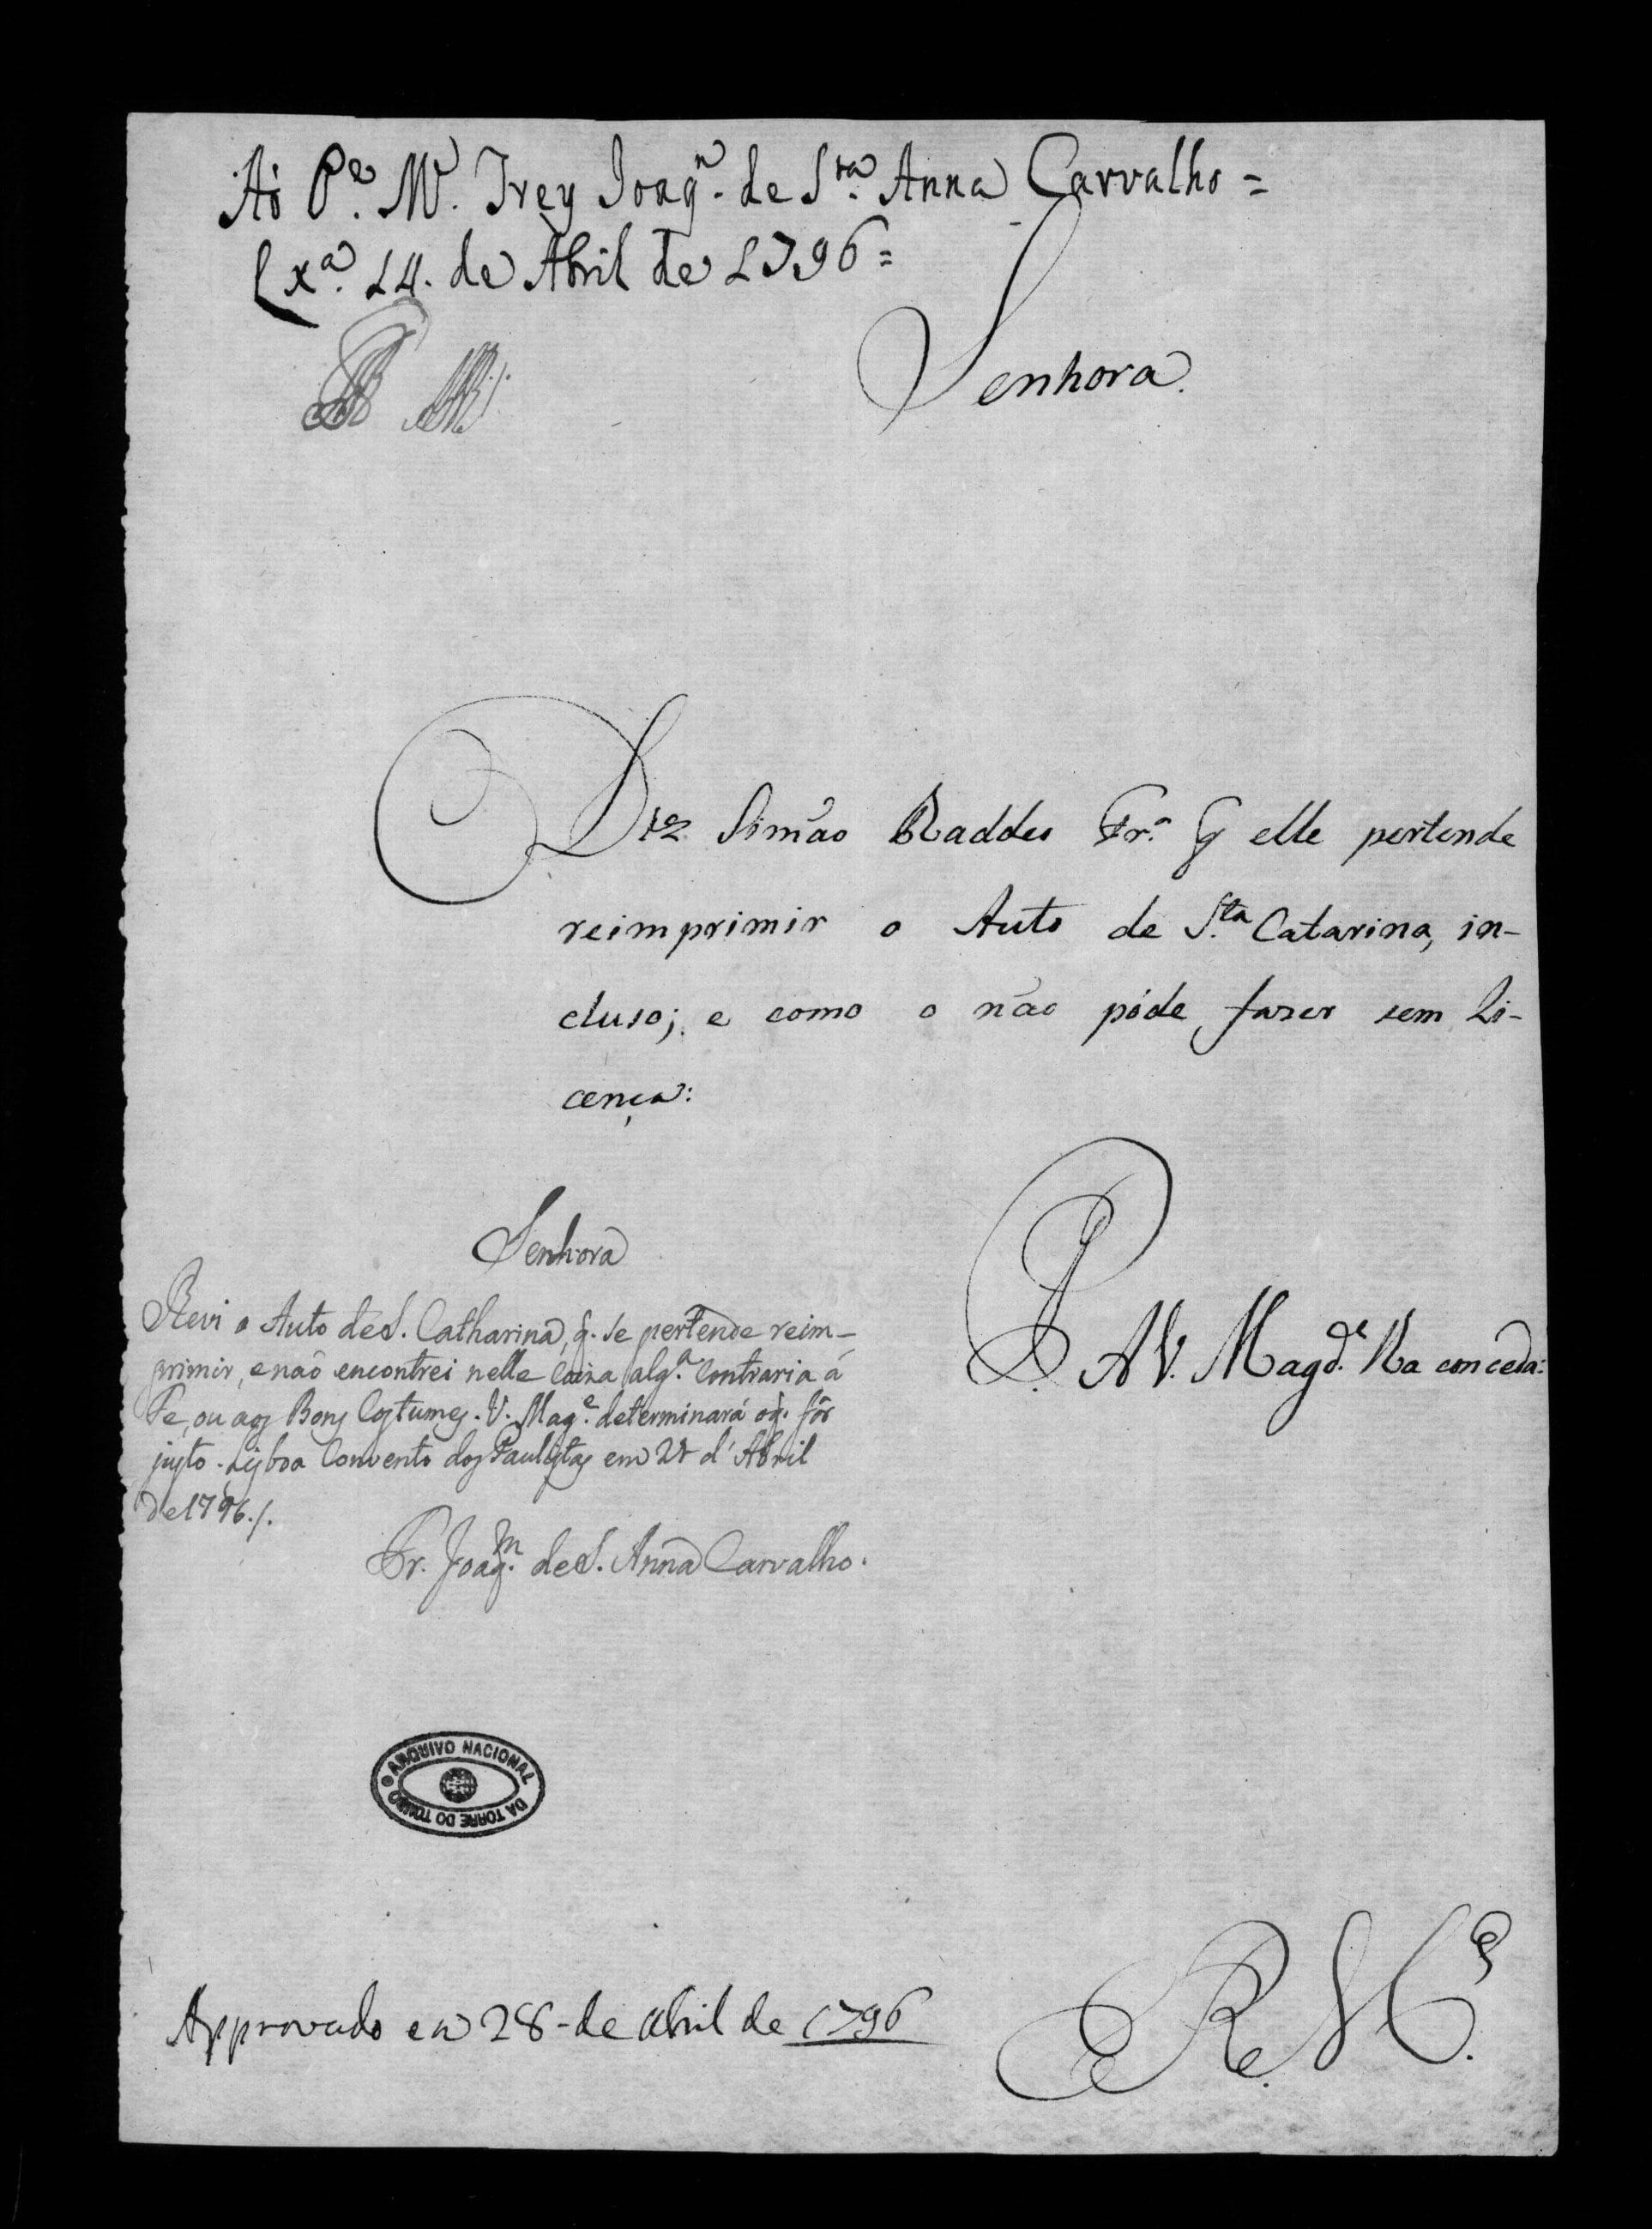 Ao P.e M. Frey Joaq.m de S.ta Anna Carvalho =
Lx.a 14. de Abril de 1796 =
Senhora.
Diz Simão Raddeo Fr.a q̃ elle pertende
reimprimir o Auto de S.ta Catarina, in-
cluso; e como o não póde fazer sem Li-
cença:
P. A V. Magd.e lha conceda:
Senhora
Revi o Auto de S. Catharina, q̃. se pertende reim-
primir, e naõ encontrei nelle Coiza alg.a Contraria á
Fe, ou aos Bons Costumes. V. Mag.e determinará oq̃. fôr
justo. Lisboa Convento dos Paulistas em 21 d'Abril
de 1796./.
Fr. Joaq.m de S. Anna Carvalho.
ARQUIVO NACIONAL
DA TORRE DO TOMBO
Approvado em 28 - de Abril de 1796
E R. M.ce